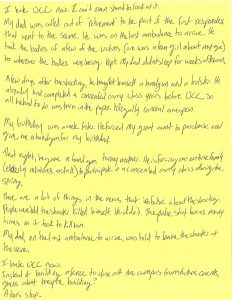 I hate UCC now. I can't even stand to look at it.
My dad was called out of retirement to be part of the first responders
that went to the scene. He was on the last ambulance to arrive. He
took the bodies of a few of the victims (one was a teen girl about my age)
to wherever the bodies were being kept. My dad didn't sleep for weeks
A few days after the shooting, he bought himself a handgun and a holster. He
already had completed a concealed carry class years before UCC, so
all he had to do was turn in the paper to legally conceal a weapon.
My birthday was a week later. He forced my great aunt to purchase and
give me a handgun for my birthday.
That night, he gave a handgun to my mother. He is forcing our entire family
(elderly relatives included) to participate in a concealed carry class during the
spring.
There are a lot of things in the news that lie about the shooting.
People were told the shooter killed himself. He didn't. The police shot him as many
times as it took to kill him.
My dad, on the last ambulance to arrive, was told to leave the shooter at
the scene.
I hate UCC now.
Instead of building a fence to close off the campus from future events,
guess what they're building?
A bus stop.